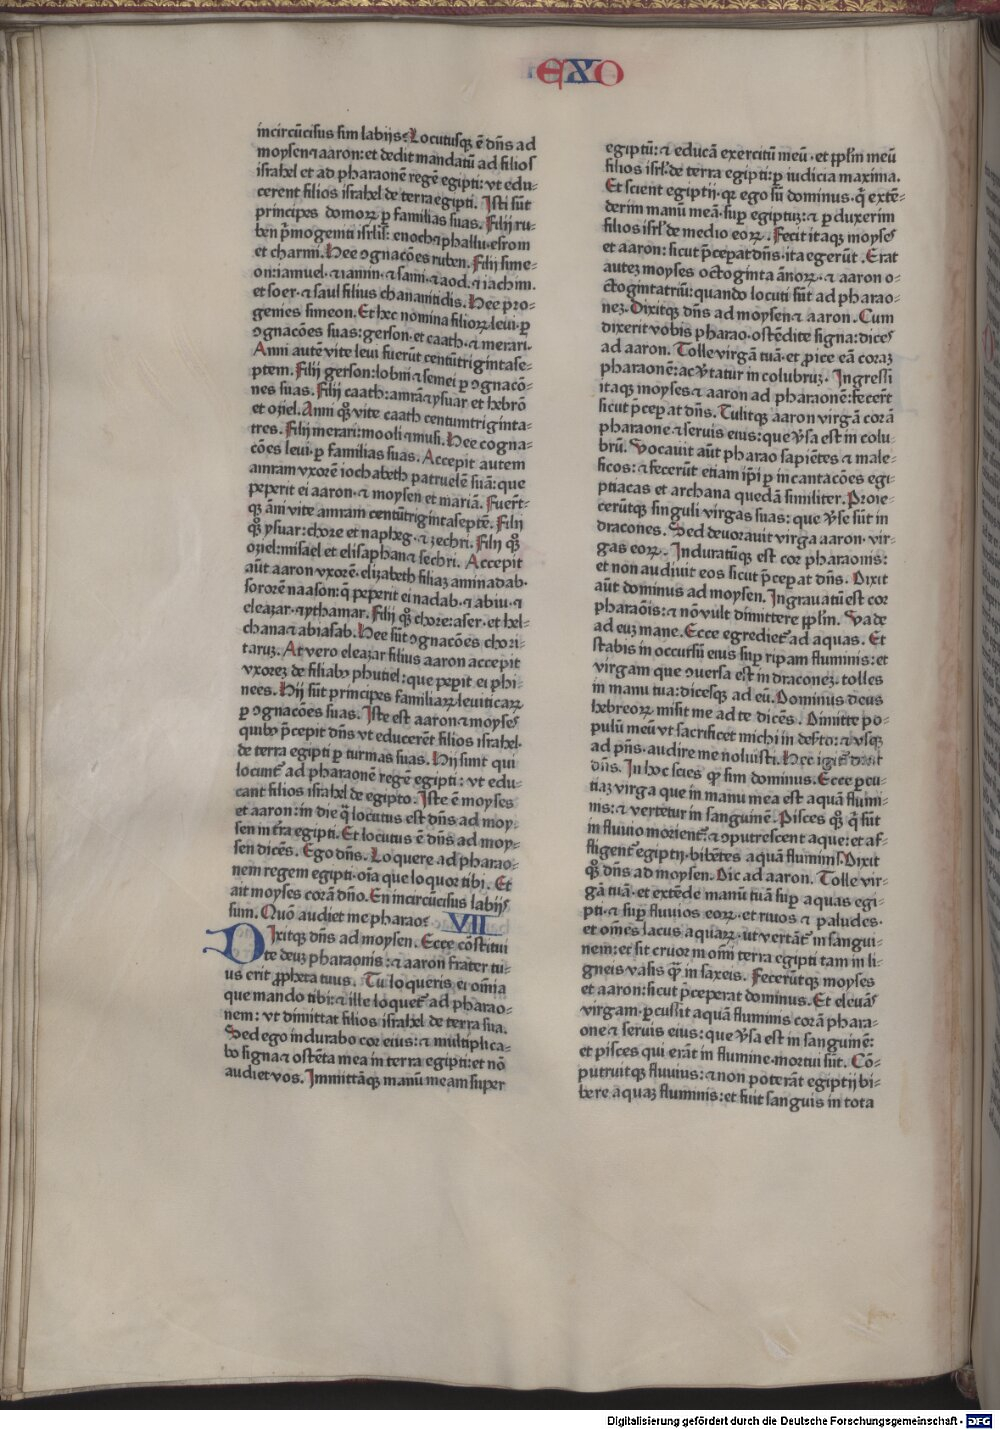 EXO
incircūcisus sim labijs? Locutusqꝫ ē dn̄s ad
moysen ⁊ aaron: et dedit mandatū ad filios
israhel et ad pharaonē regē egipti: vt edu-
cerent filios israhel de terra egipti. Isti sūt
principes domoꝝ ꝑ familias suas. Filij ru-
ben p̄mogeniti isrl̓is: enoch ⁊ phallu· esrom
et charmi. Hee ꝯgnac̄oes ruben. Filij sime-
on: iamuel· ⁊ iamin· ⁊ saim· ⁊ aod· ⁊ iachim.
et soer· ⁊ saul filius chananitidis. Hec pro-
genies simeon. Et hec nomina filioꝝ leui· ꝑ
ꝯgnac̄oes suas: gerson· et caath· ⁊ merari.
Anni autē vite leui fuerūt centūtrigintase-
ptem. Filij gerson: lobni ⁊ semei ꝑ ꝯgnac̄o-
nes suas. Filij caath: amrā ⁊ ysuar et hebrō
et oziel. Anni qꝫ vite caath centumtriginta-
tres. Filij merari: mooli ⁊ musi. Hee cogna-
c̄oes leui· ꝑ familias suas. Accepit autem
amram vxorē iochabeth patruelē suā: que
peperit ei aaron· ⁊ moysen et mariā. Fuerūt-
qꝫ āni vite amram centūtrigintaseptē. Filij
qꝫ ysuar: chore et napheg· ⁊ zechri. Filij qꝫ
oziel: misael et elisaphan ⁊ sechri. Accepit
aūt aaron vxorē· elizabeth filiaꝫ aminadab·
sororē naason: q̄ peperit ei nadab· ⁊ abiu· ⁊
eleazar· ⁊ ythamar. Filij qꝫ chore: aser· et hel-
chana ⁊ abiasab. Hee sūt ꝯgnac̄oes chori-
taruꝫ. At vero eleazar filius aaron accepit
vxoreꝫ de filiabꝫ phutiel: que peꝑit ei phi-
nees. Hij sūt principes familiaꝝ leuiticaꝝ
ꝑ ꝯgnac̄oes suas. Iste est aaron ⁊ moyses
quibꝫ p̄cepit dn̄s vt educerēt filios israhel·
de terra egipti ꝑ turmas suas. Hij sunt qui
locunt᷑ ad pharaonē regē egipti: vt edu-
cant filios israhel de egipto. Iste ē moyses
et aaron: in die q̄ locutus est dn̄s ad moy-
sen in t̄ra egipti. Et locutus ē dn̄s ad moy-
sen dicēs. Ego dn̄s. Loquere ad pharao-
nem regem egipti· oīa que loquor tibi. Et
ait moyses corā dn̄o. En incircūcisus labijs
sum. Quō audiet me pharao? VII
Dixitqꝫ dn̄s ad moysen. Ecce cōstitui
te deuꝫ pharaonis: ⁊ aaron frater tu-
us erit ꝓpheta tuus. Tu loqueris ei om̄ia
que mando tibi: ⁊ ille loquet᷑ ad pharao-
nem: vt dimittat filios israhel de terra sua.
Sed ego indurabo cor eius: ⁊ multiplica-
bo signa ⁊ ostēta mea in terra egipti: et nō
audiet vos. Immittāqꝫ manū meam super
egiptū: ⁊ educā exercitū meū· et ppl̄m meū
filios isrl̓· de terra egipti: ꝑ iudicia maxima.
Et scient egiptij· qꝛ ego sū dominus· q̄ extē-
derim manū meā· suꝑ egiptuꝫ: ⁊ ꝑduxerim
filios isrl̓ de medio eoꝝ. Fecit itaqꝫ moyses
et aaron: sicut p̄ceꝑat dn̄s· ita egerūt. Erat
auteꝫ moyses octoginta ānoꝝ· ⁊ aaron o-
ctogintatriū: quando locuti sūt ad pharao-
neꝫ. Dixitqꝫ dn̄s ad moysen ⁊ aaron. Cum
dixerit vobis pharao· ostēdite signa: dices
ad aaron. Tolle virgā tuā· et ꝓice eā coraꝫ
pharaonē: ac v̓tatur in colubruꝫ. Ingressi
itaqꝫ moyses ⁊ aaron ad pharaonē: fecerūt
sicut p̄ceꝑat dn̄s. Tulitqꝫ aaron virgā corā
pharaone ⁊ seruis eius: que v̓sa est in colu-
brū. Vocauit aūt pharao sapiētes ⁊ male-
ficos: ⁊ fecerūt etiam ip̄i ꝑ incantac̄oes egi-
ptiacas et archana quedā similiter. Proie-
cerūtqꝫ singuli virgas suas: que v̓se sūt in
dracones. Sed deuorauit virga aaron· vir-
gas eoꝝ. Induratūqꝫ est cor pharaonis:
et non audiuit eos sicut p̄ceꝑat dn̄s. Dixit
aūt dominus ad moysen. Ingrauatū est cor
pharaōis: ⁊ nō vult dimittere ppl̄m. Vade
ad euꝫ mane. Ecce egrediet᷑ ad aquas. Et
stabis in occursū eius suꝑ ripam fluminis: et
virgam que ꝯuersa est in draconeꝫ· tolles
in manu tua: dicesqꝫ ad eū. Dominus deus
hebreoꝝ misit me ad te dicēs. Dimitte po-
pulū meū vt sacrificet michi in deserto: ⁊ vsqꝫ
ad p̄ns· audire me noluisti. Hec igit᷑ dicit
dn̄s. In hoc scies qꝫ sim dominus. Ecce ꝑcu-
tiaꝫ virga que in manu mea est aquā flumi-
nis: ⁊ vertetur in sanguinē. Pisces qꝫ q̄ sūt
in fluuio morient᷑: ⁊ ꝯputrescent aque: et af-
fligent᷑ egiptij· bibētes aquā fluminis. Dixit
qꝫ dn̄s ad moysen. Dic ad aaron. Tolle vir-
gā tuā· et extēde manū tuā suꝑ aquas egi-
pti· ⁊ suꝑ fluuios eoꝝ· et riuos ⁊ paludes·
et om̄es lacus aquaꝝ· ut vertāt᷑ in sangui-
nem: et sit cruor in om̄i terra egipti tam in li-
gneis vasis qꝫ in saxeis. Fecerūtqꝫ moyses
et aaron: sicut p̄ceperat dominus. Et eleuās
virgam· ꝑcussit aquā fluminis corā phara-
one ⁊ seruis eius: que v̓sa est in sanguinē:
et pisces qui erāt in flumine· mortui sūt. Cō-
putruitqꝫ fluuius: ⁊ non poterāt egiptij bi-
bere aquaꝫ fluminis: et fuit sanguis in tota
Digitalisierung gefördert durch die Deutsche Forschungsgemeinschaft - DFG